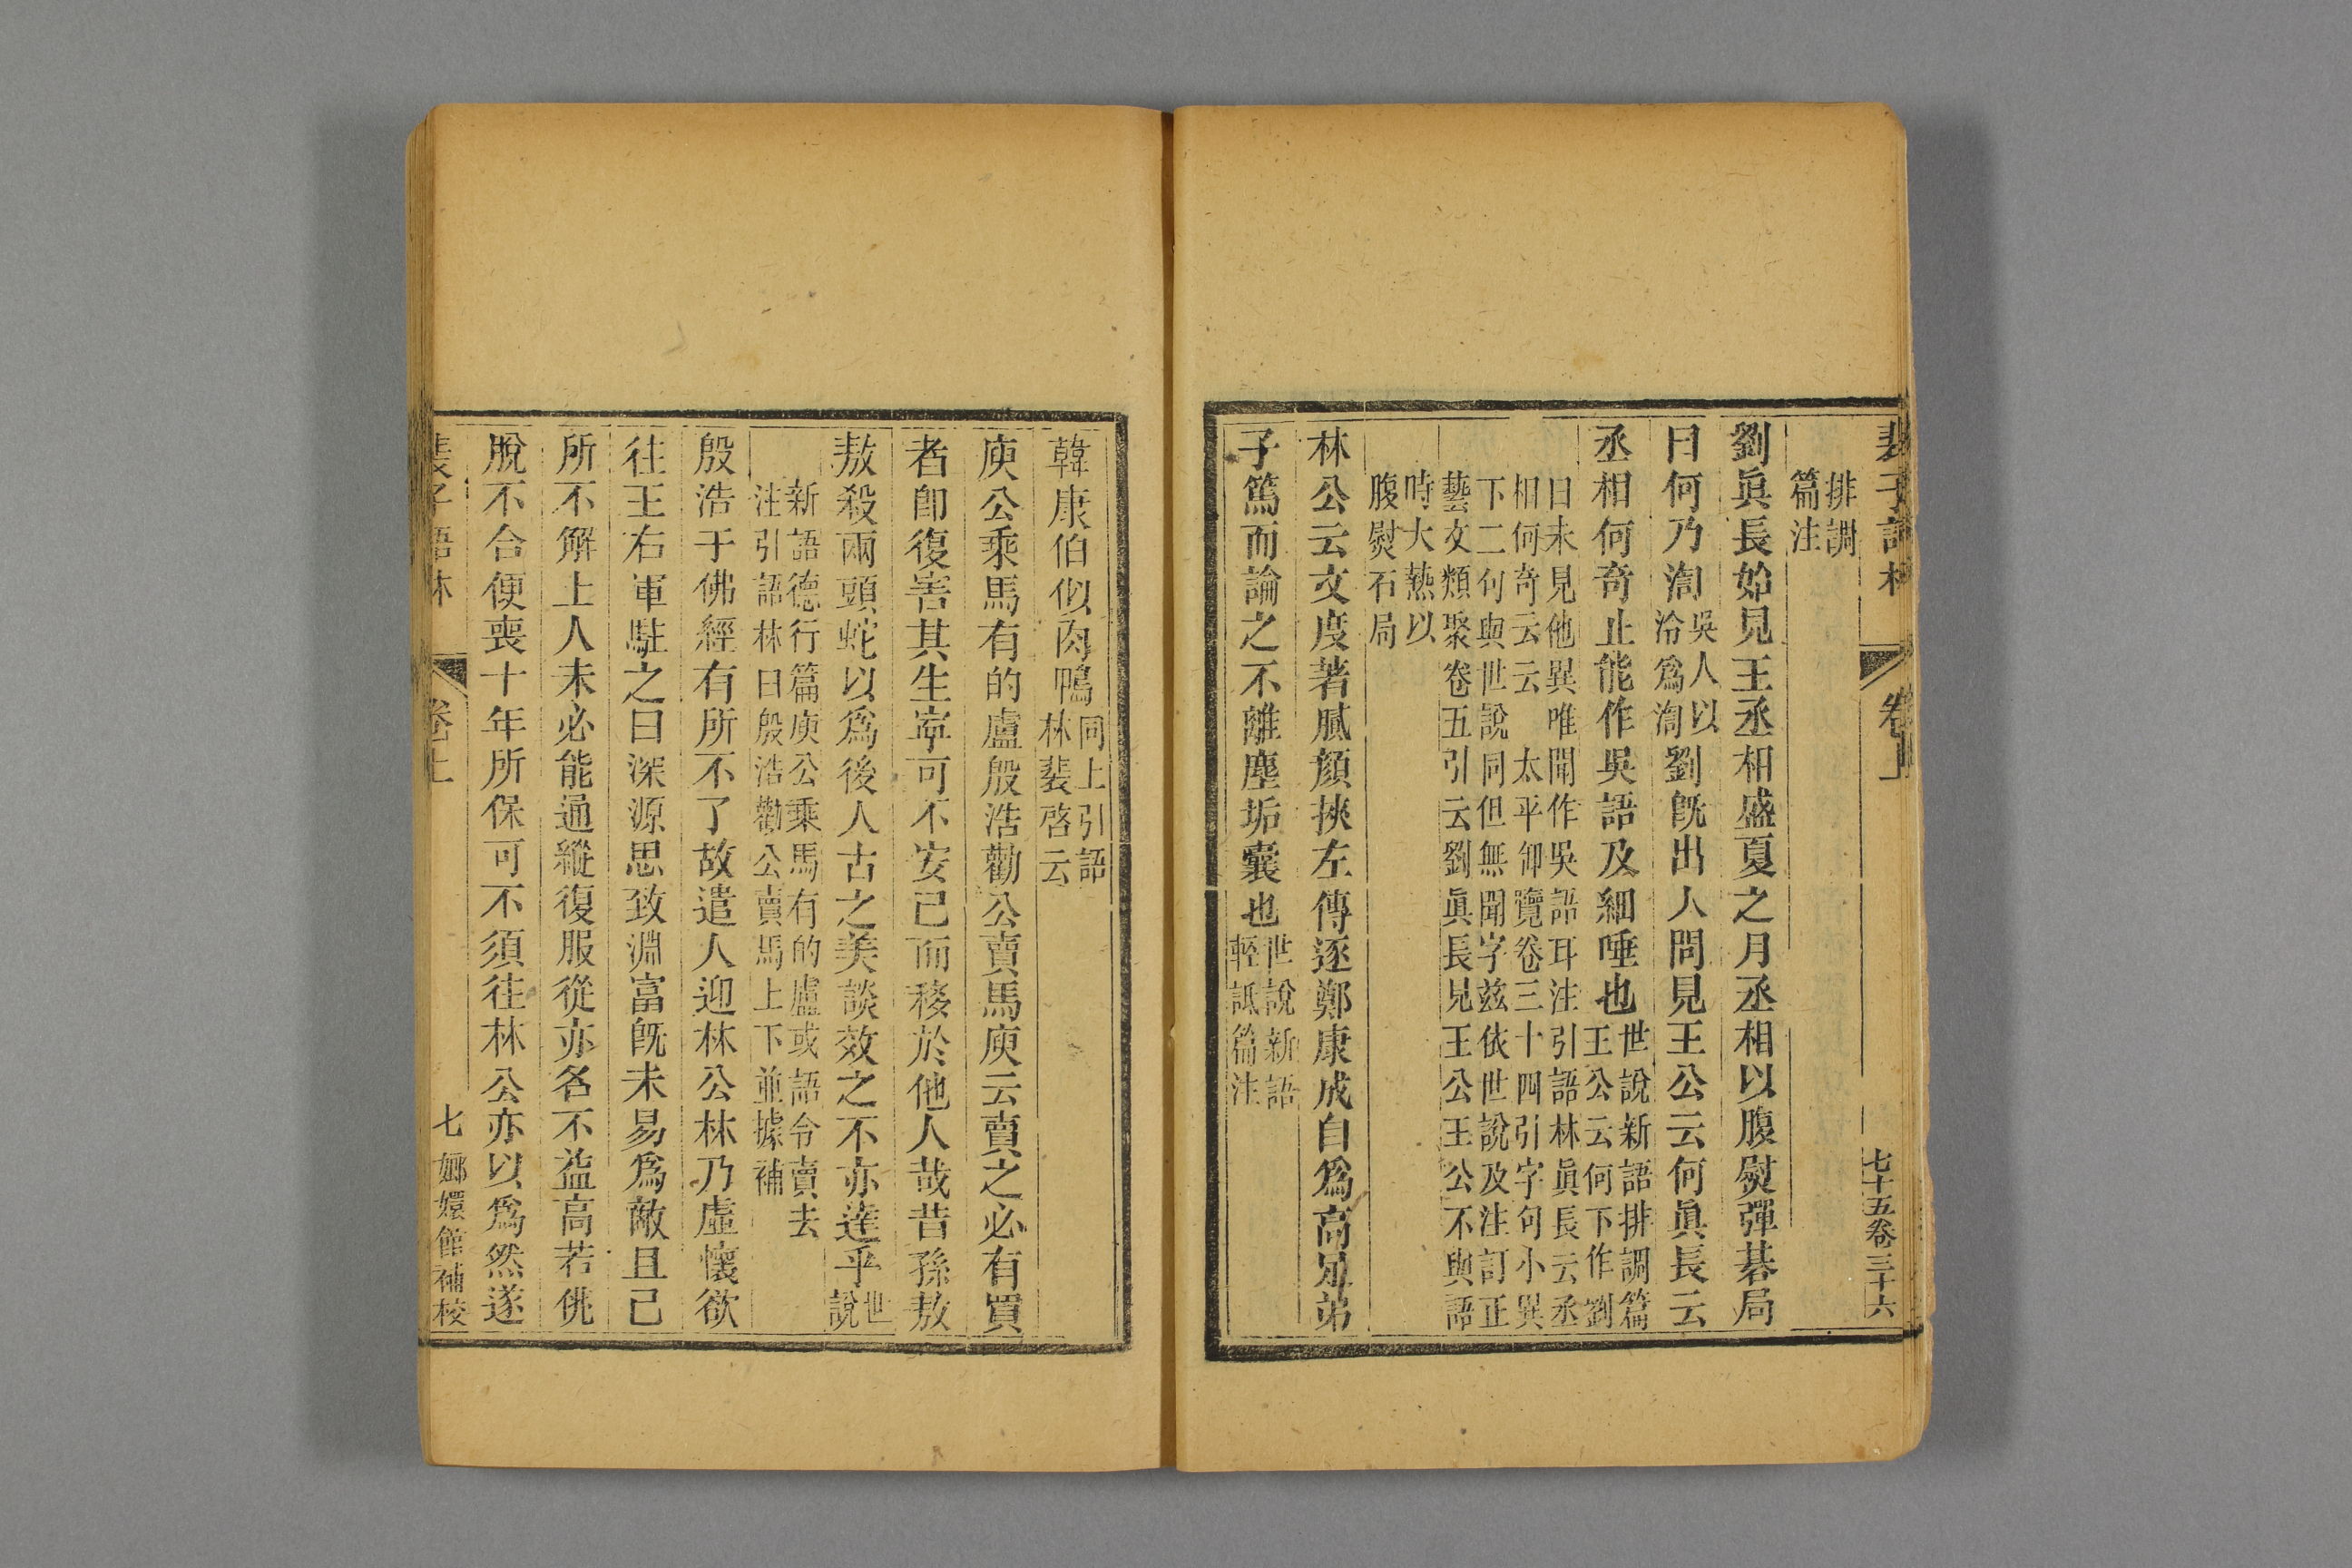 裴子語林 卷上 七十五卷三十六
排調
篇注
劉眞長始見王丞相盛夏之月丞相以腹熨彈棊局
曰何乃渹吳人以冷爲渹劉旣出人問見王公云何眞長云
丞相何奇止能作吳語及細唾也世說新語排調篇王公云何下作劉
曰未見他異唯聞作吳語耳注引語林眞長云丞
相何奇云云 太平御覽卷三十四引字句小異
下二句與世說同但無聞字兹依世說及注訂正
藝文類聚卷五引云劉眞長見王公王公不與語
時大熱以
腹熨石局
林公云文度著膩顏挾左傳逐鄭康成自爲高足弟
子篤而論之不離塵垢囊也世說新語輕詆篇注
韓康伯似肉鴨同上引語林裴啓云
庾公乘馬有的盧殷浩勸公賣馬庾云賣之必有買
者卽復害其生寧可不安己而移於他人哉昔孫敖
敖殺兩頭蛇以爲後人古之美談效之不亦達乎世說
新語德行篇庾公乘馬有的盧或語令賣去
注引語林曰殷浩勸公賣馬上下並據補
殷浩于佛經有所不了故遣人迎林公林乃虛懷欲
往王右軍駐之曰深源思致淵富旣未易爲敵且己
所不解上人未必能通縱復服從亦名不益高若佻
脫不合便喪十年所保可不須往林公亦以爲然遂
裴子語林 卷上 七 嫏嬛館補校